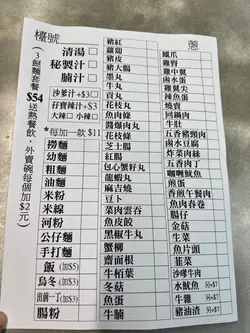 檯號
(3餸麵套餐$54送熱餐飲，外賣碗每個加$2元)
清湯
秘製汁
腩汁
沙爹汁+$3
孖寶辣汁+$3
大辣 小辣
*每加一款$11
撈麵
幼麵
粗麵
油麵
米粉
米線
河粉
公仔麵
手打麵
飯(加$5)
烏冬(加$3)
出前一丁(加$3)
腸粉
豬紅
蘿蔔
豬皮
豬大腸
墨丸
牛丸
貢丸
花枝丸
魚肉條
醬爆肉丸
花枝丸
芝士腸
紅腸
包心蟹籽丸
龍蝦丸
麻吉燒
豆卜
菜肉雲吞
魚皮餃
黑椒牛丸
蟹柳
齋面根
牛栢葉
冬菇
魚蛋
牛腩
蔥
鳳爪
雞腎
雞中翼
鹵水蛋
雞翼尖
辣魚蛋
燒賣
回鍋肉
牛肚
五香豬頸肉
鹵水豆腐
炸菜肉絲
五香肉丁
咖喱魷魚
煎蛋
香煎午餐肉
魚肉春卷
腸仔
金菇
生菜
魚片頭
韮菜
沙嗲牛肉
水魷魚 另+$7
牛雜 另+$7
豬油渣 另+$7